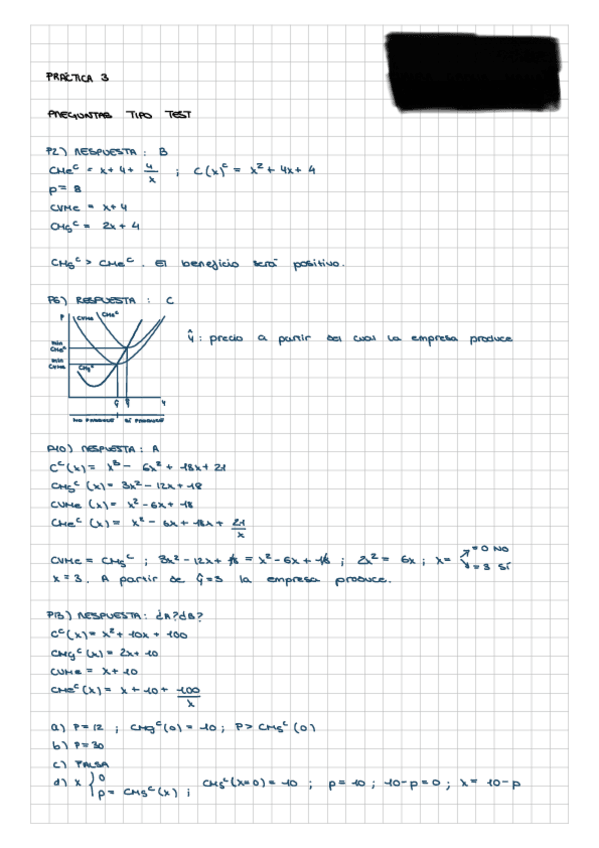 PRÁCTICA 3
PREGUNTAS TIPO TEST
P2) RESPUESTA : B
CMe^c = x + 4 + 4/x ; C(x)^c = x² + 4x + 4
p = 8
CVMe = x + 4
CMg^c = 2x + 4
CMg^c > CMe^c . El beneficio será positivo.
P6) RESPUESTA : C
P CVMe CMe^c
ŷ : precio a partir del cual la empresa produce
min CMe^c
min CVMe
CMg^c
ŷ ŷ y
NO PRODUCE SÍ PRODUCE
P10) RESPUESTA : A
C^c(x) = x³ - 6x² + 18x + 21
CMg^c (x) = 3x² - 12x + 18
CVMe (x) = x² - 6x + 18
CMe^c (x) = x² - 6x + 18x + 21/x
CVMe = CMg^c ; 3x² - 12x + 18 = x² - 6x + 18 ; 2x² = 6x ; x = = 0 NO = 3 SÍ
x = 3 . A partir de ŷ = 3 la empresa produce.
P13) RESPUESTA : ¿A? ¿B?
C^c(x) = x² + 10x + 100
CMg^c (x) = 2x + 10
CVMe = x + 10
CMe^c (x) = x + 10 + 100/x
a) P = 12 ; CMg^c (0) = 10 ; P > CMg^c (0)
b) P = 30
c) FALSA
d) x { 0 p = CMg^c (x) ; CMg^c (x=0) = 10 ; p = 10 ; 10 - p = 0 ; x = 10 - p